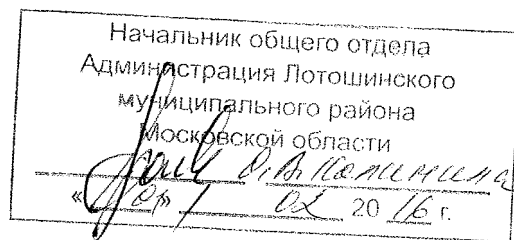 Начальник общего отдела
Администрация Лотошинского
муниципального района
Московской области
О.В. Калинина
« 01 » 02 2016 г.